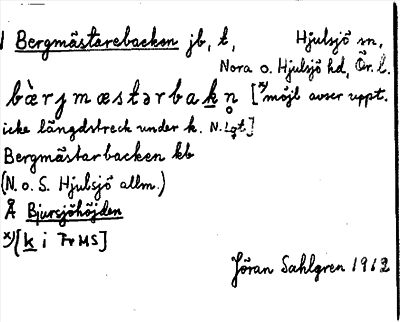 Bergmästarebacken jb, t, Hjulsjö sn,
Nora o. Hjulsjö hd, Ör. l.
bæ̀rjmæstərbakn̥ [x) möjl avser uppt.
icke längdstreck under k. N. Lgt]
Bergmästarbacken kb
(N. o. S. Hjulsjö allm.)
Å Bjursjöhöjden
x) [k i FrMS]
Jöran Sahlgren 1912